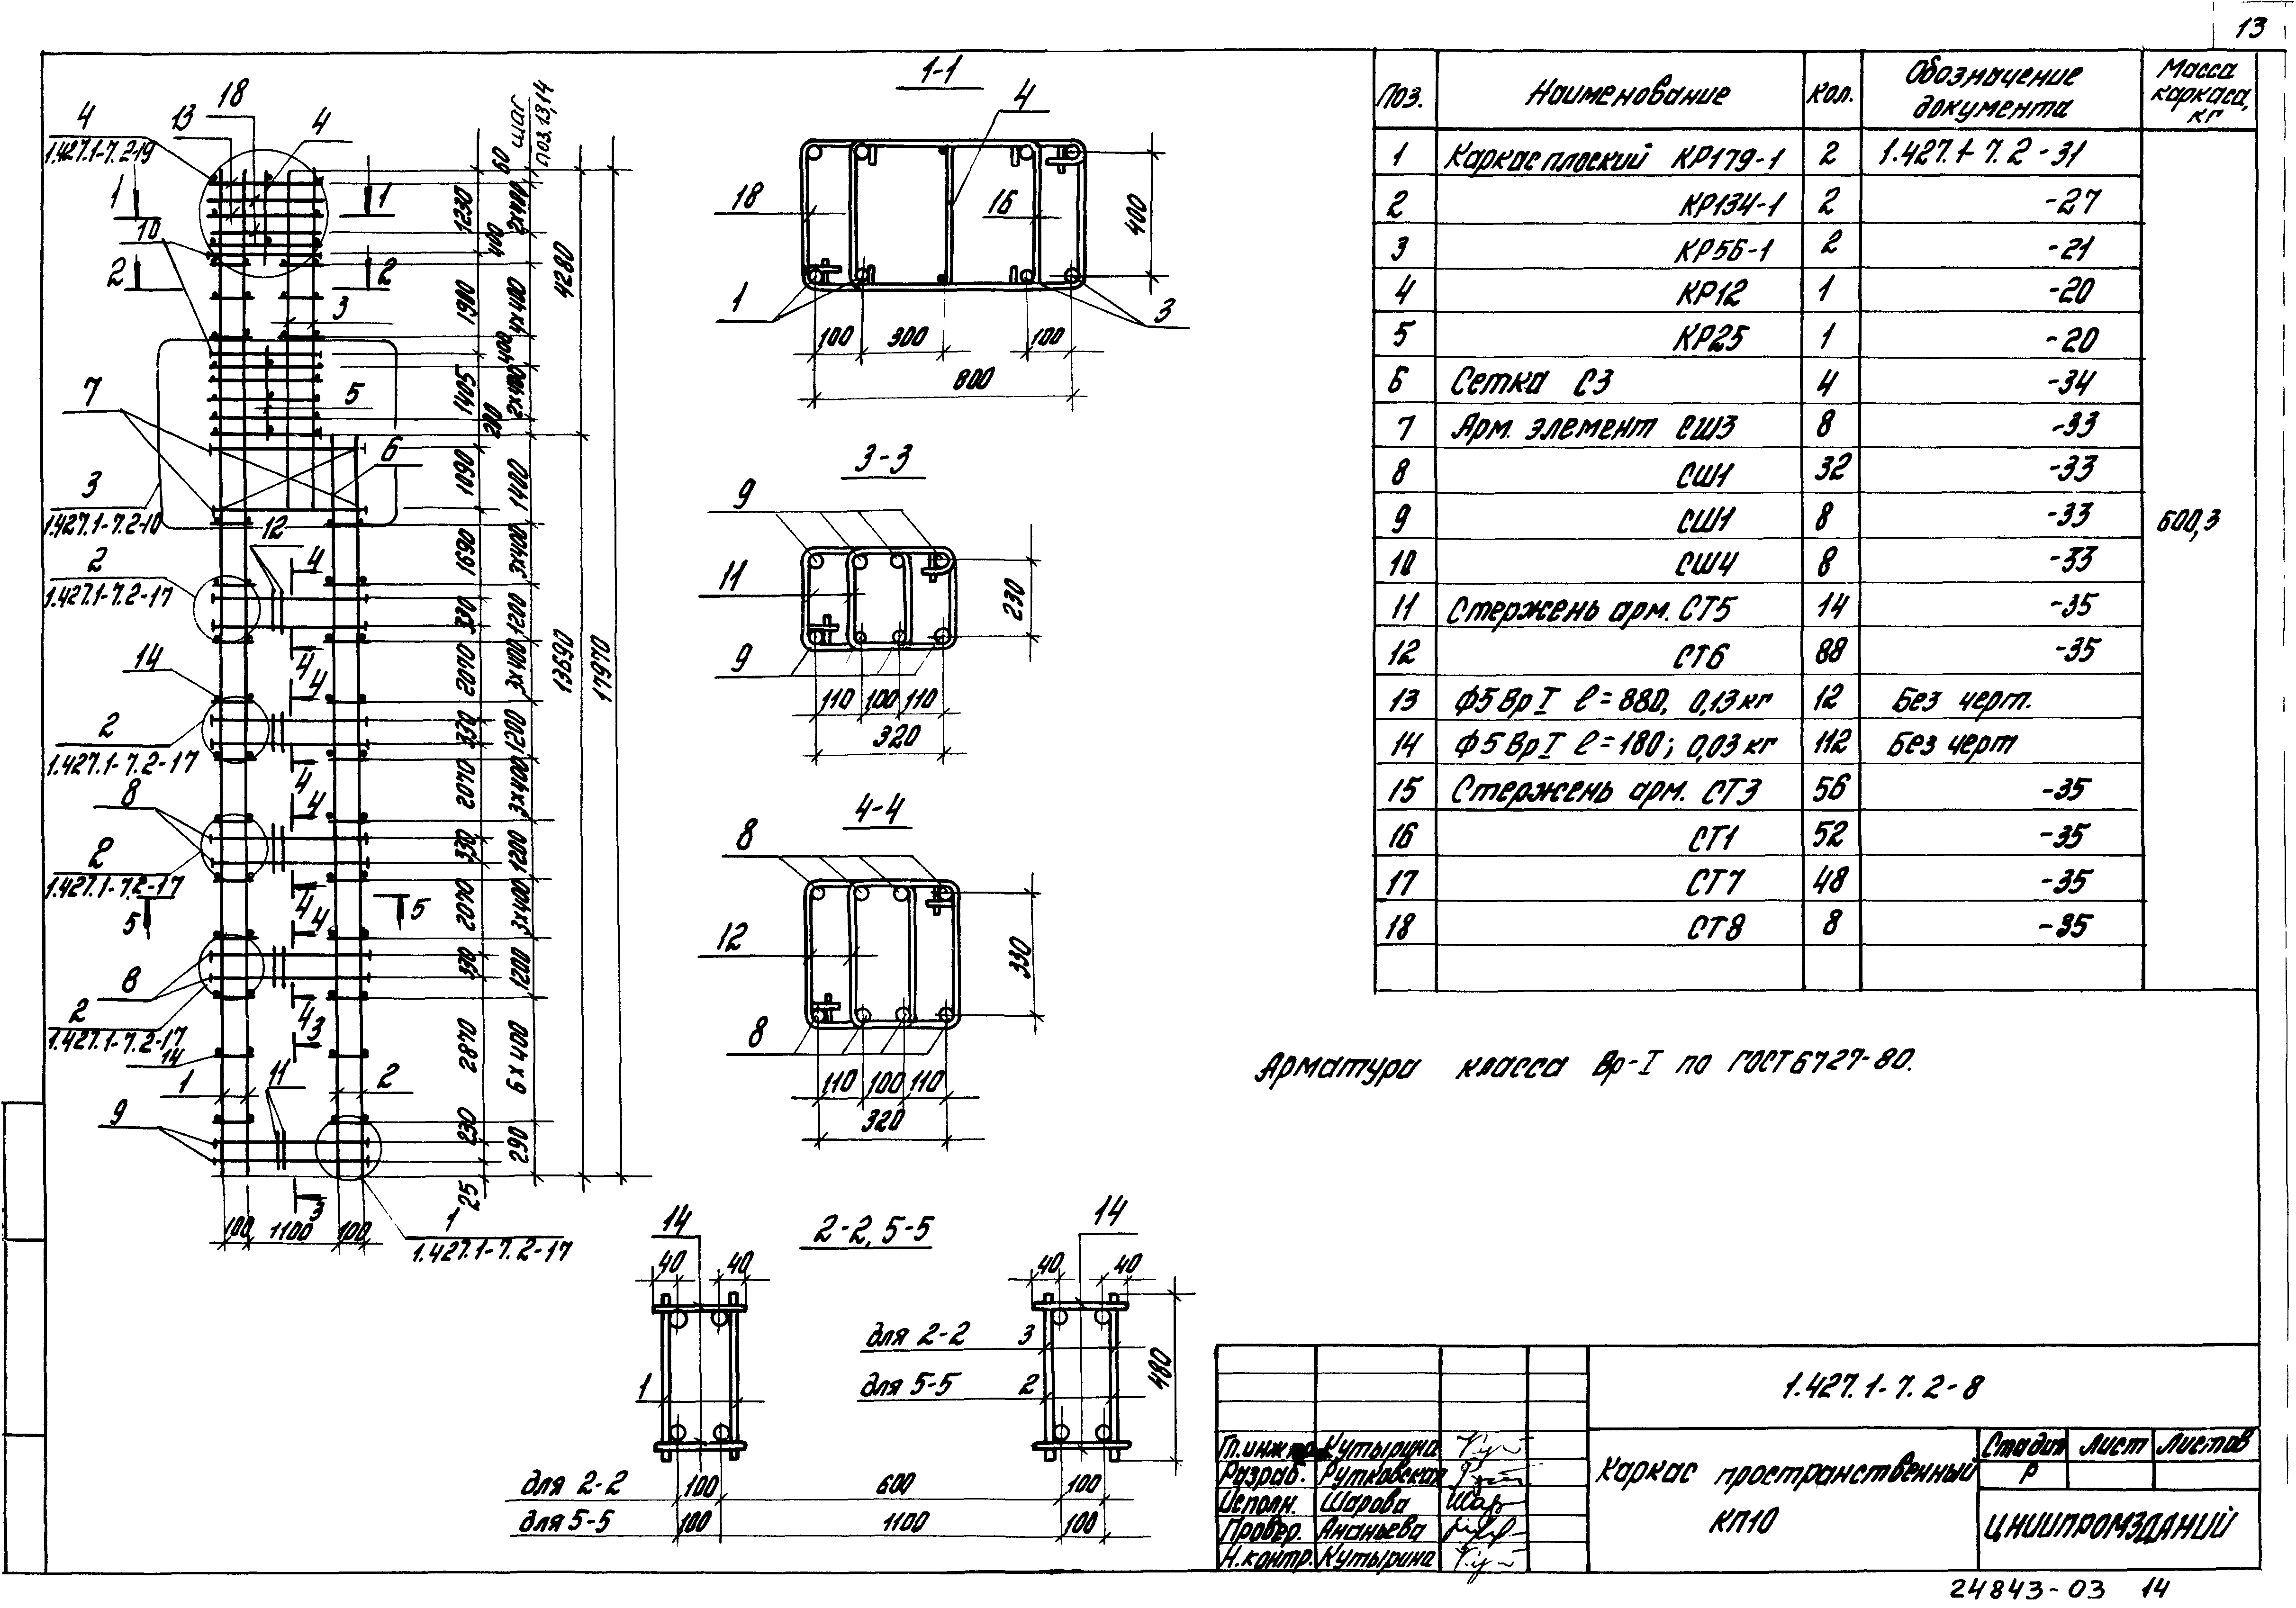 13
Поз. Наименование Кол. Обозначение документа Масса каркаса, кг
1 Каркас плоский КР179-1 2 1.427.1-7.2-31
2 КР134-1 2 -27
3 КР56-1 2 -21
4 КР12 1 -20
5 КР25 1 -20
6 Сетка С3 4 -34
7 Арм. элемент СШ3 8 -33
8 СШ1 32 -33
9 СШ1 8 -33
600,3
10 СШ4 8 -33
11 Стержень арм. СТ5 14 -35
12 СТ6 88 -35
13 Ф5 Вр I ℓ=880, 0,13кг 12 Без черт.
14 Ф5 Вр I ℓ=180; 0,03кг 112 Без черт
15 Стержень арм. СТ3 56 -35
16 СТ1 52 -35
17 СТ7 48 -35
18 СТ8 8 -35
Арматура класса Вр-I по ГОСТ 6727-80.
18
13
4
4
1.427.1-7.2-19
1
1
10
2
2
3
7
5
6
3
1.427.1-7.2-10
12
4
2
1.427.1-7.2-17
4
14
4
2
1.427.1-7.2-17
4
8
4
2
1.427.1-7.2-17
4
5
5
4
8
2
1.427.1-7.2-17
4
3
14
1
11
2
9
3
100
1100
100
1
1.427.1-7.2-17
шаг поз.13,14
60
1230
2х400
400
1980
4х400
400
1405
2х400
200
1090
1400
1690
3х400
330
1200
2070
3х400
330
1200
2070
3х400
330
1200
2070
3х400
330
1200
2870
6х400
230
290
25
4280
13690
17970
1-1
4
18
16
400
1
3
100
300
100
800
3-3
9
11
230
9
110
100
110
320
4-4
8
12
330
8
110
100
110
320
2-2, 5-5
14
14
40
40
40
40
для 2-2 3
для 5-5 2
1
480
для 2-2 100 600 100
для 5-5 100 1100 100
1.427.1-7.2-8
Гл.инж.пр. Кутырина
Разраб. Рутковская
Исполн. Шарова Шар
Провер. Ананьева
Н.контр. Кутырина
Каркас пространственный
КП10
Стадия Лист Листов
Р
ЦНИИПРОМЗДАНИЙ
24843-03 14